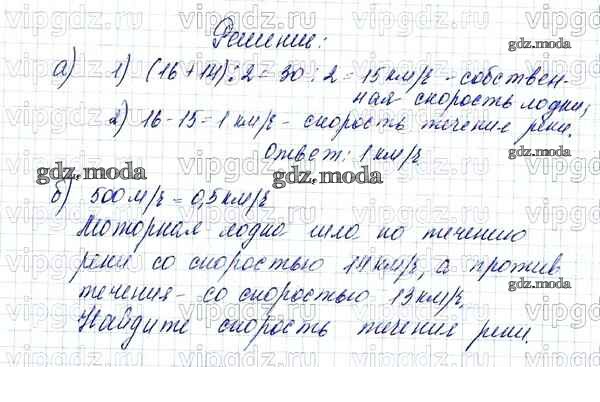 Решение:
а) 1) (16 + 14) : 2 = 30 : 2 = 15 км/ч - собствен-
ная скорость лодки,
2) 16 - 15 = 1 км/ч - скорость течения реки.
Ответ: 1 км/ч
б) 500 м/ч = 0,5 км/ч
Моторная лодка шла по течению
реки со скоростью 14 км/ч, а против
течения - со скоростью 13 км/ч.
Найдите скорость течения реки.
gdz.moda
gdz.moda
gdz.moda
gdz.moda
gdz.moda
gdz.moda
vipgdz.ru